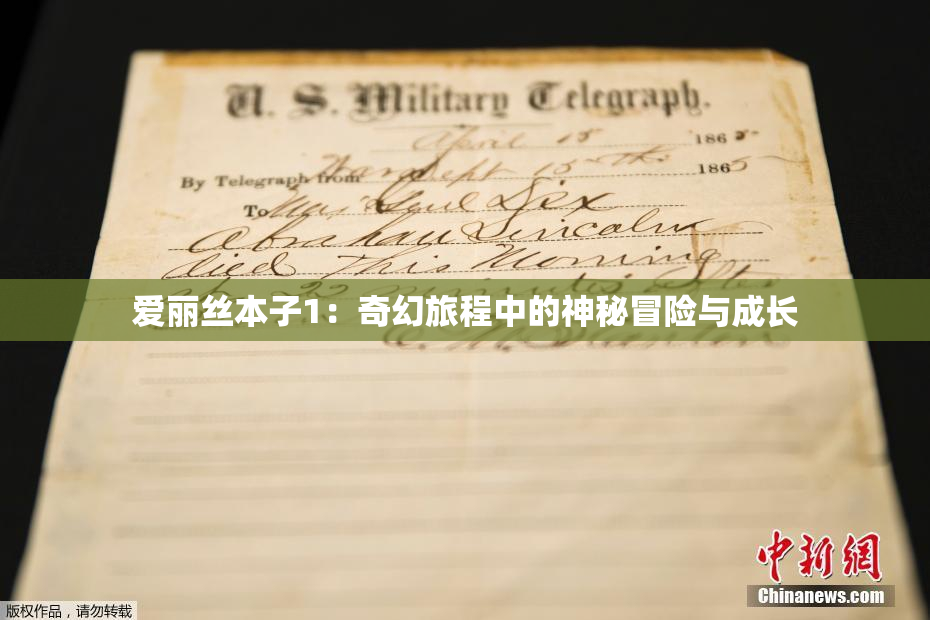 U. S. Military Telegraph.
April 15 1865
By Telegraph from War Dept 15th 1865
To Maj Genl Dix
Abraham Lincoln
died This Morning
at 22 minutes after
爱丽丝本子1：奇幻旅程中的神秘冒险与成长
E. M. Stanton
中新网
Chinanews.com
版权作品，请勿转载